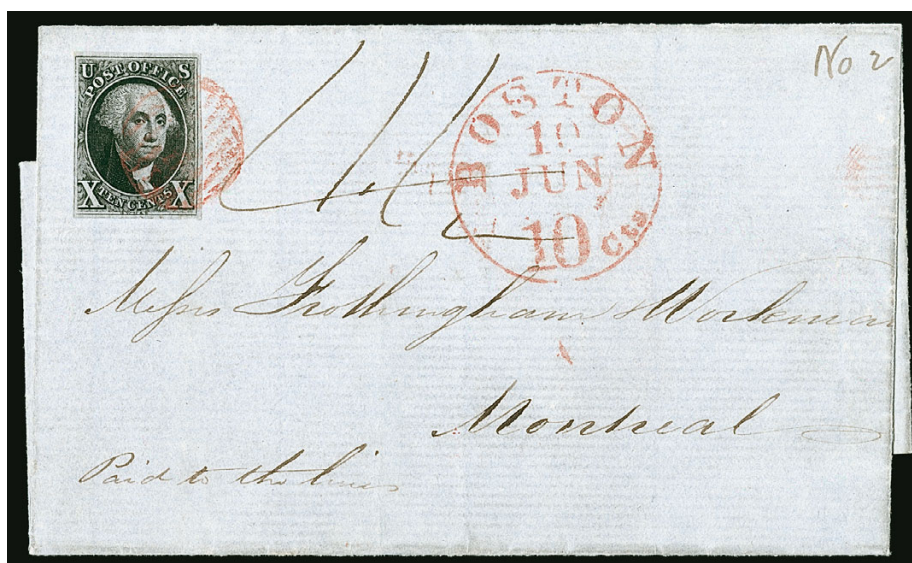 U S
POST OFFICE
X TEN CENTS X
BOSTON
19
JUN
10 Cts
No 2
Messrs Frothingham & Workman
Montreal
Paid to the lines